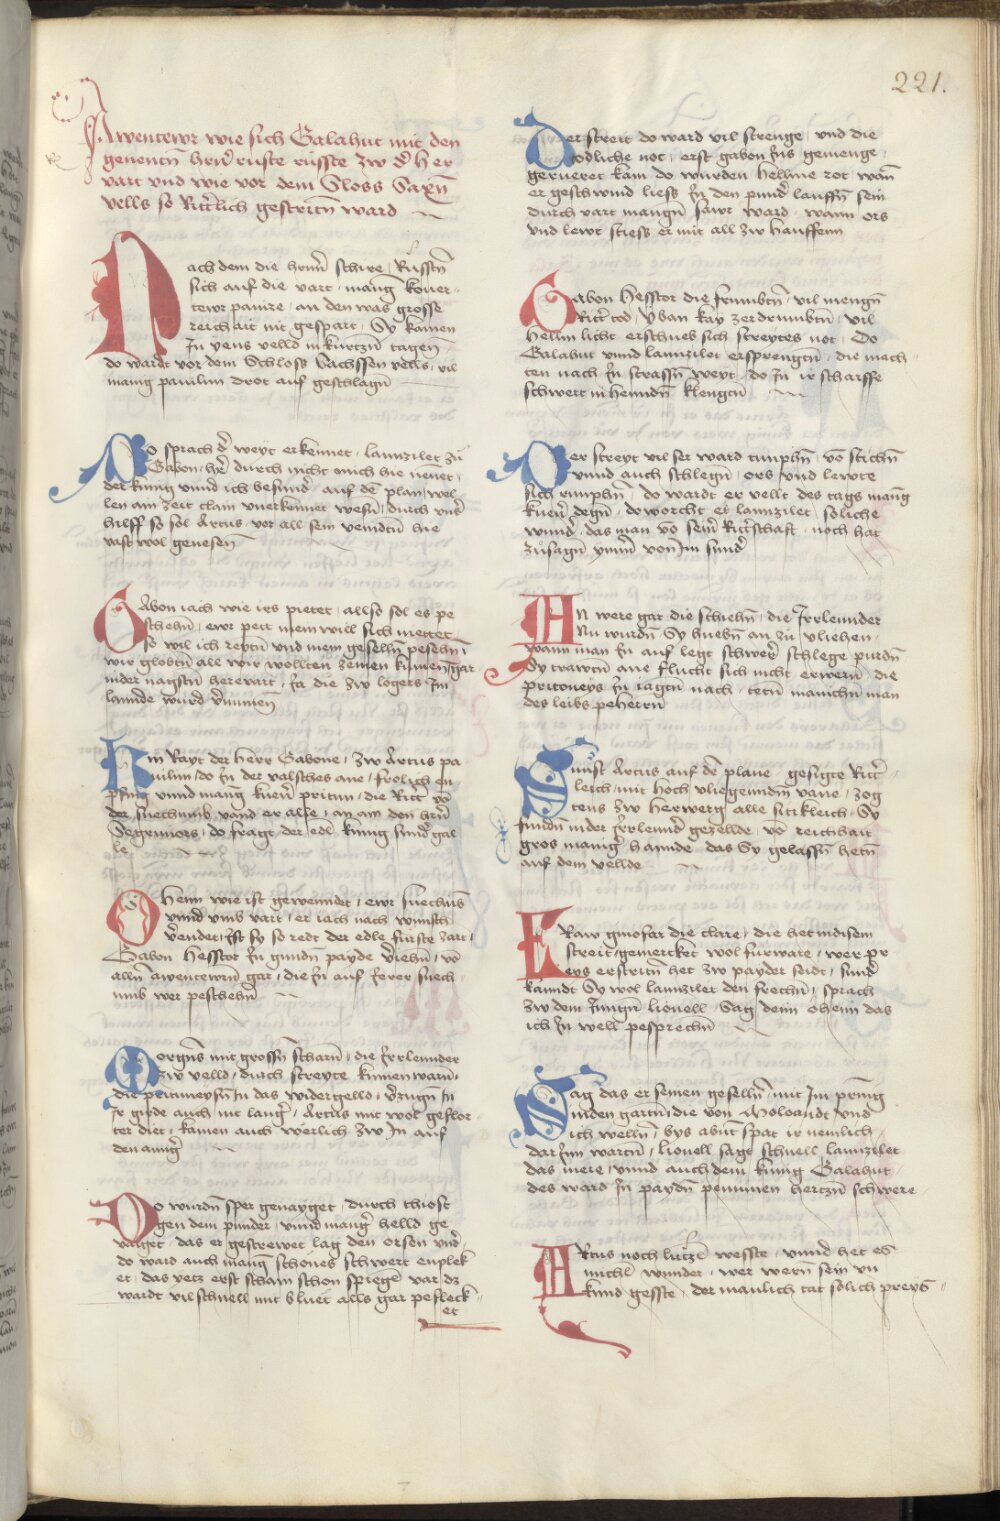 221.
Awentewr wie sich Galahut mit den
genenten hern ruste russte zw der Her
vart vnd wie vor dem Sloss Saxn̄
vells so Ritt'lich gestriten ward
Nach dem die herrn̄ schire Russtn̄
sich auf die vart mang kover-
tewr panire an den was grosse
reichait nit gespart Sy kamen
In yens velld in kurtzn̄ tagen̄
do wardt vor dem Schloss Sachssen vells vil
manig pauilun drot auf geschlagn̄
Do sprach der weyt erkennet lannzilet zu
Gabon her durch nicht mich hie nenet
der kunig vnnd ich besund' auf dē plan wel
len ain zeit clain vnerkennet wesn̄ durch vnser
hilff so sol Artus vor all sein veindtn̄ hie
vast wol genesen̄
Gabon iach wie irs pietet allso sol es pe
schehn̄ ewr pett mein will sich mettet
so wil ich reytn̄ vnd mein geselln̄ pesehn̄
wir globtn̄ ale wir wollten zemen kumen gar
in der nagstn̄ herevart Ja die zw logers Im
lannde wurd v'numen̄
Hin Rayt der Herr Gabone zw Artus pa
uilun do Jn der valsches ane frolich en
pfing vnnd mang kuen' pritun die Ritt' vō
der suechnus vand er alle an ain den hern̄
Segremors do fragt der edl kunig sund' gal
le
Ohem wie ist gewenndet ewr suechnus
vnnd vmb vart er iach nach wunsch
v'endet Ist sy so redt der edle furste zart
Gabon Hesstor Jn gundn̄ payde v'iehn̄ vō
alln̄ awentewrn̄ gar die Jn auf Jerer suech
nus wer peschehn̄
Morgn̄s mit grossn̄ scharn̄ die Jrrlennder
zw velld durch streyte kumen warn̄
die prituneysn̄ In das widergelld v'zugn̄ In
Jr girde auch nit lang' Artus mit wol geflor
ter diet kamen auch werlich zw In auf
den anng'
Do wurdn̄ sper genayget durch thiost
gen dem punder vnnd mang' helld ge
vallget das er gestrewet lag den orsen vnd'
do ward auch mang schones schwert enplek
et das vetz erst scham schon spiegē var dz
wardt vil schnell mit bluet alls gar pefleck-
et
Der streit do ward vil strenge vnd die
todliche not erst gabon Jns gemenge
gerueret kam do wurden hellme rot wan̄
er geschwind liess Jn den pund' lauffn̄ sein
durch vart mangn̄ sawr ward wann ors
vnd lewt stiess er mit all zw hauffenn
Gabon Hesstor die frumbtn̄ vil mengn̄
Ritt' tod Yban kay zerdrumbtn̄ vil
hellm licht erschueb sich streytes not Do
Galahut vnnd lannzilet ersprengtn̄ die mach-
ten nach Jn strassn̄ weyt do Jn ir scharffe
schwert in henndn̄ klengtn̄
Der streyt vil ser ward timphn̄ vō stichn̄
vnnd auch schlegn̄ ors vnd lewte
sich rimphn̄ do wardt er vellt des tags mang
kuen' degn̄ do worcht er lannzilet soliche
wund' das man vō sein' Ritterschaft noch hat
zusagn̄ ymm' von Im sund'
An were gar die schiehn̄ die Jrrlennder
Nu wurdn̄ Sy huebn̄ an zu vliehen
wann man Jn auf legt schwer' schlege purdn̄
Sy trawtn̄ ane flucht sich nicht erwern̄ die
pritoneys Jn iagtn̄ nach tetn̄ manichn̄ man
des leibs peherrn̄
Sunst Artus auf dē plane gesigte Ritt'
leich mit hoch vliegenndn̄ vane zog
tens zw Herwerg alle sitikleich Sy
fundn̄ in der Jrrlennd' gezellde vō reichait
gros manig' hannde das Sy gelassn̄ hetn̄
auf dem vellde
Fraw ginofar die clare die het in disem
streit gemercket wol furware wer pr
eys erstritn̄ het zw payder seidt sund'
kanndt Sy wol lannzilet den frechn̄ sprach
zw dem Jungn̄ lionell Sag deim oheim das
ich Jn well pesprechn̄
Sag das er seinen geselln̄ mit Im pring
in den gartn̄ die von Moloandt vnd
ich welln̄ vys abn̄t spat ir nemlich
dar Jnn wartn̄ lionell sagt schnell lannzilet
das mere vnnd auch dem kunig Galahut
des ward Jn paydn̄ peninnen hertzn̄ schwere
Artus noch lutzl wesste vnnd het es
michl wunder wer wern̄ sein vn
kund gesste der manlich tat solich preys-